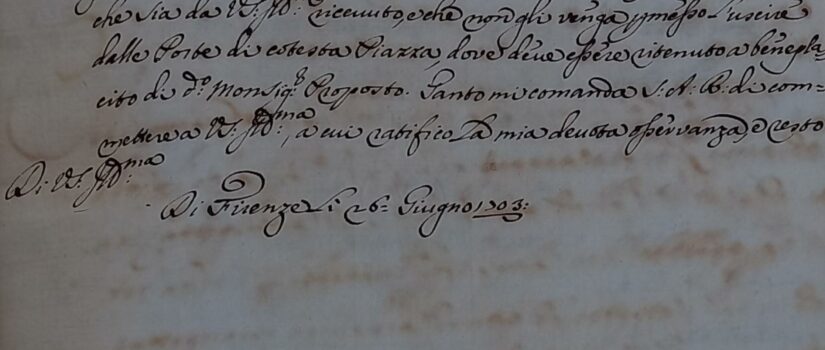 che sia da V.S. Ill:ma ricevuto, e che non gli venga pmesso l'uscire
dalle Porte di cotesta Piazza, dove deve essere ritenuto a benepla
cito di d.o Monsig.r Proposto. Tanto mi comanda S: A: R: di com=
mettere a V.S. Ill:ma, a cui ratifico la mia devota osservanza, e resto
Di V.S. Ill:ma
Di Firenze li 26= Giugno 1703: